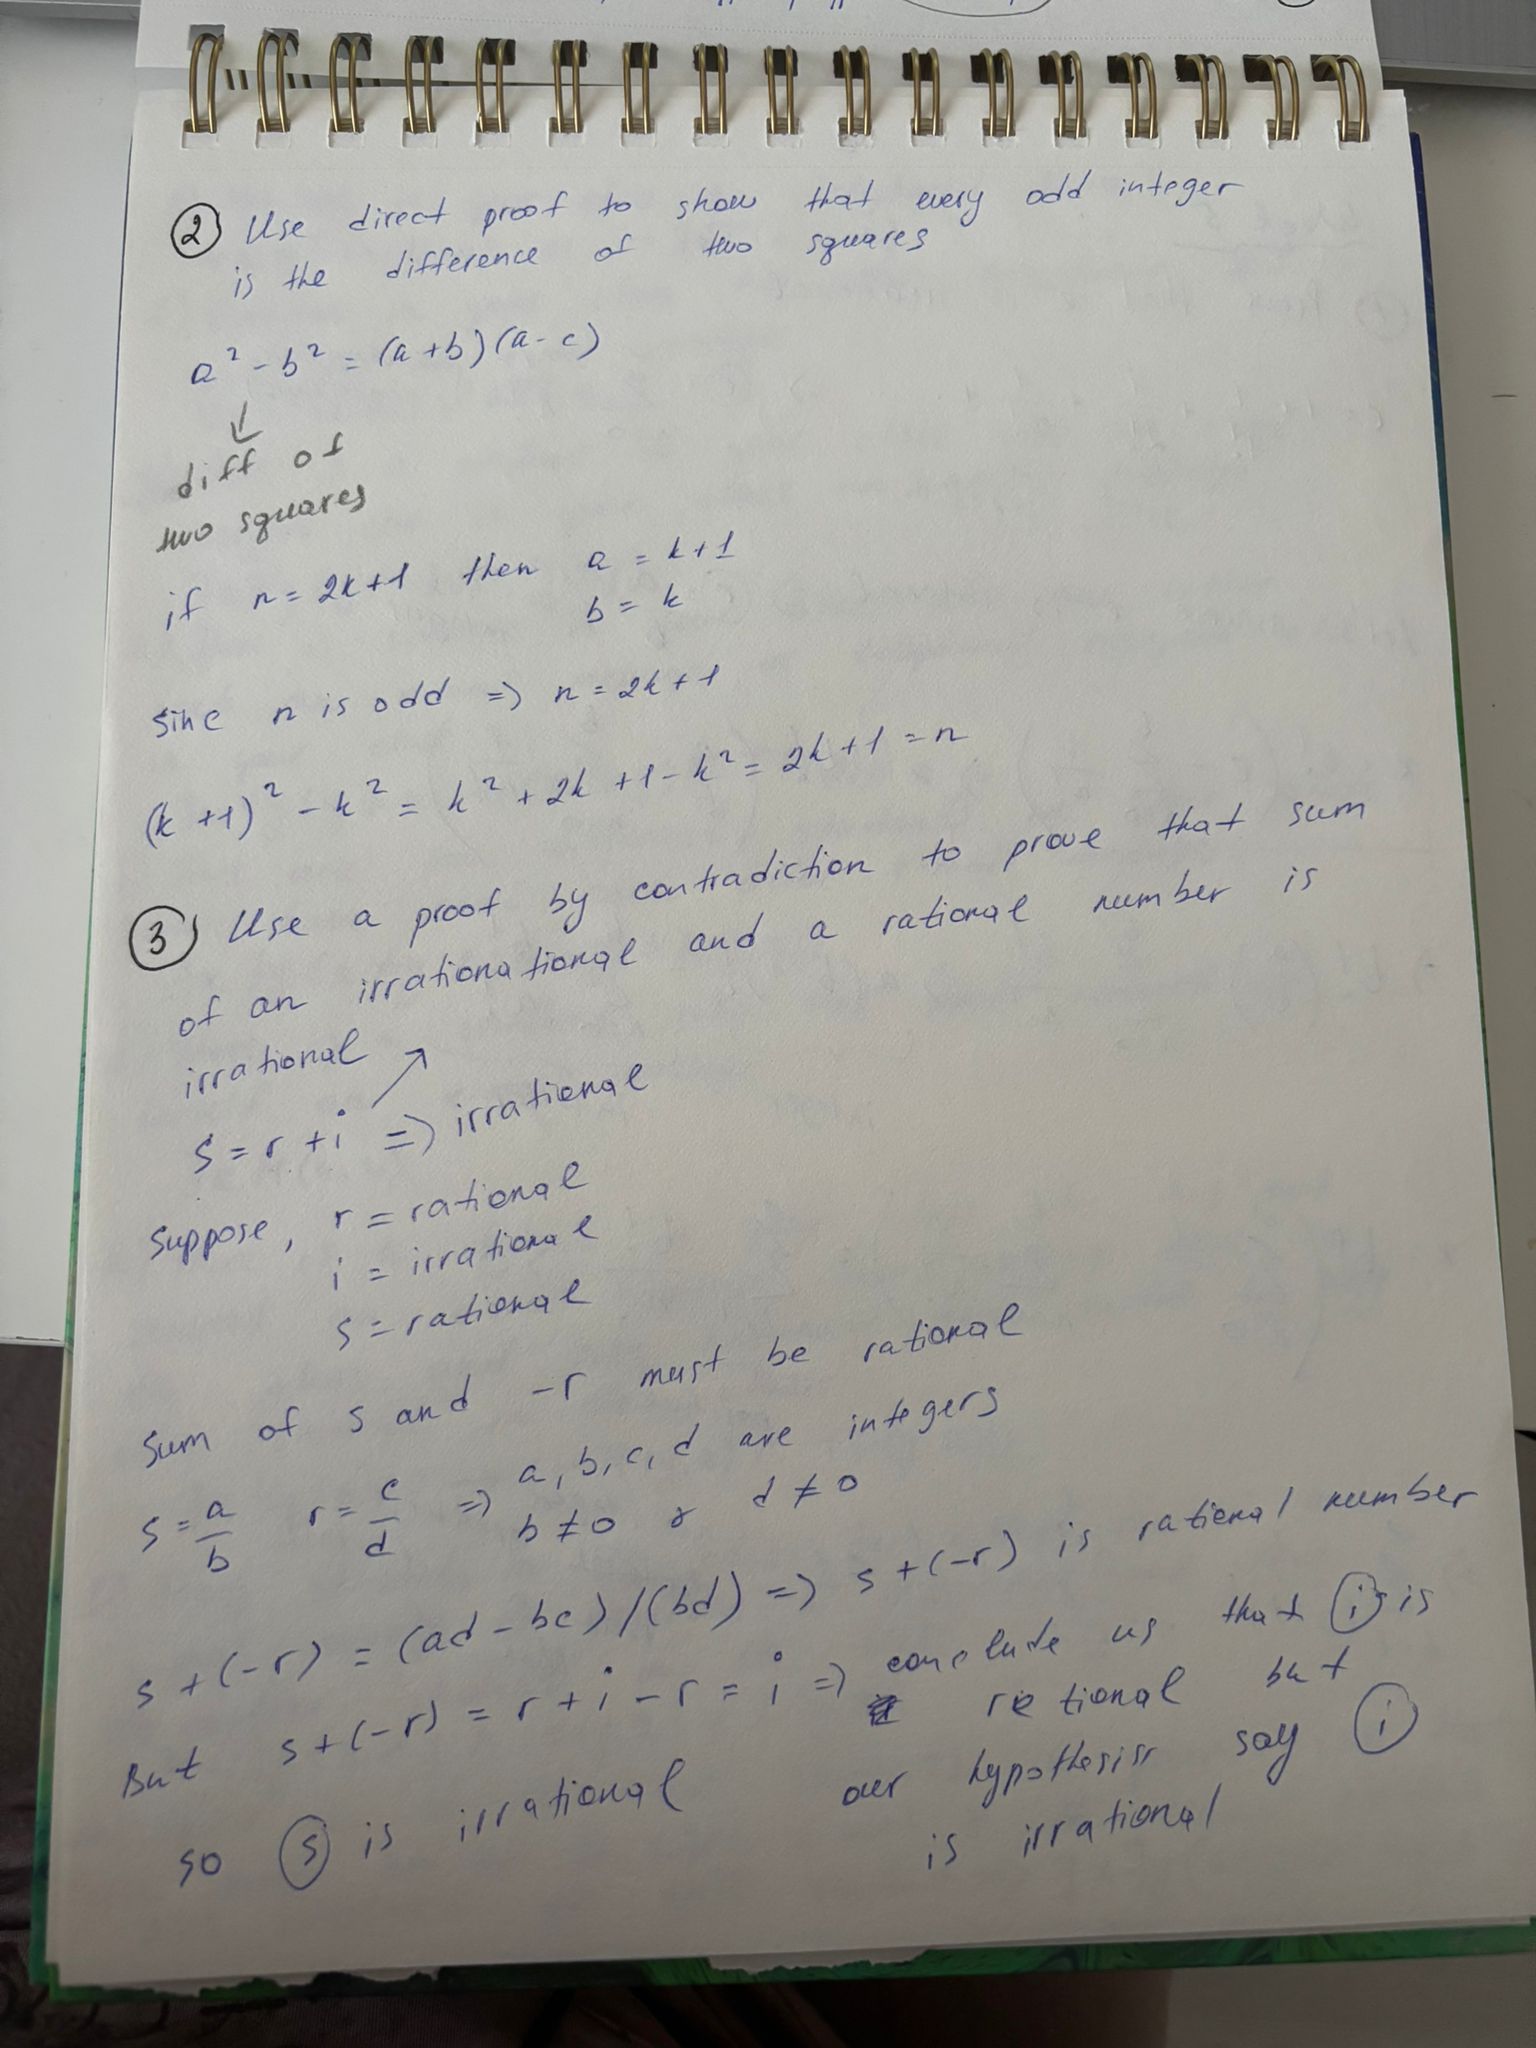 ② Use direct proof to show that every odd integer
is the difference of two squares
a² - b² = (a + b) (a - c)
↓
diff of
two squares
if n = 2k+1 then a = k+1
b = k
Sinc n is odd => n = 2k+1
(k+1)² - k² = k² + 2k + 1 - k² = 2k + 1 = n
③ Use a proof by contradiction to prove that sum
of an irrationational and a rational number is
irrational ↗
S = r + i => irrational
Suppose, r = rational
i = irrational
S = rational
Sum of s and -r must be rational
S = a/b r = c/d => a, b, c, d are integers
b ≠ 0 & d ≠ 0
s + (-r) = (ad - bc) / (bd) => s + (-r) is rational number
But s + (-r) = r + i - r = i => conclude us that ⓘ is
rational but
our hypothesis say ⓘ
is irrational
so Ⓢ is irrational